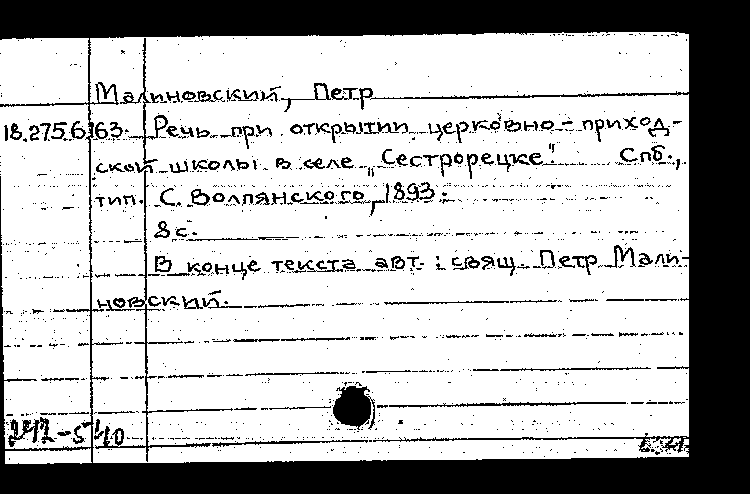 Малиновский, Петр
18.275.6.163. Речь при открытии церковно-приход-
ской школы в селе „Сестрорецке". Спб.,
тип. С. Волпянского, 1893.
8 с.
В конце текста авт.: свящ. Петр Мали-
новский.
242-5/40